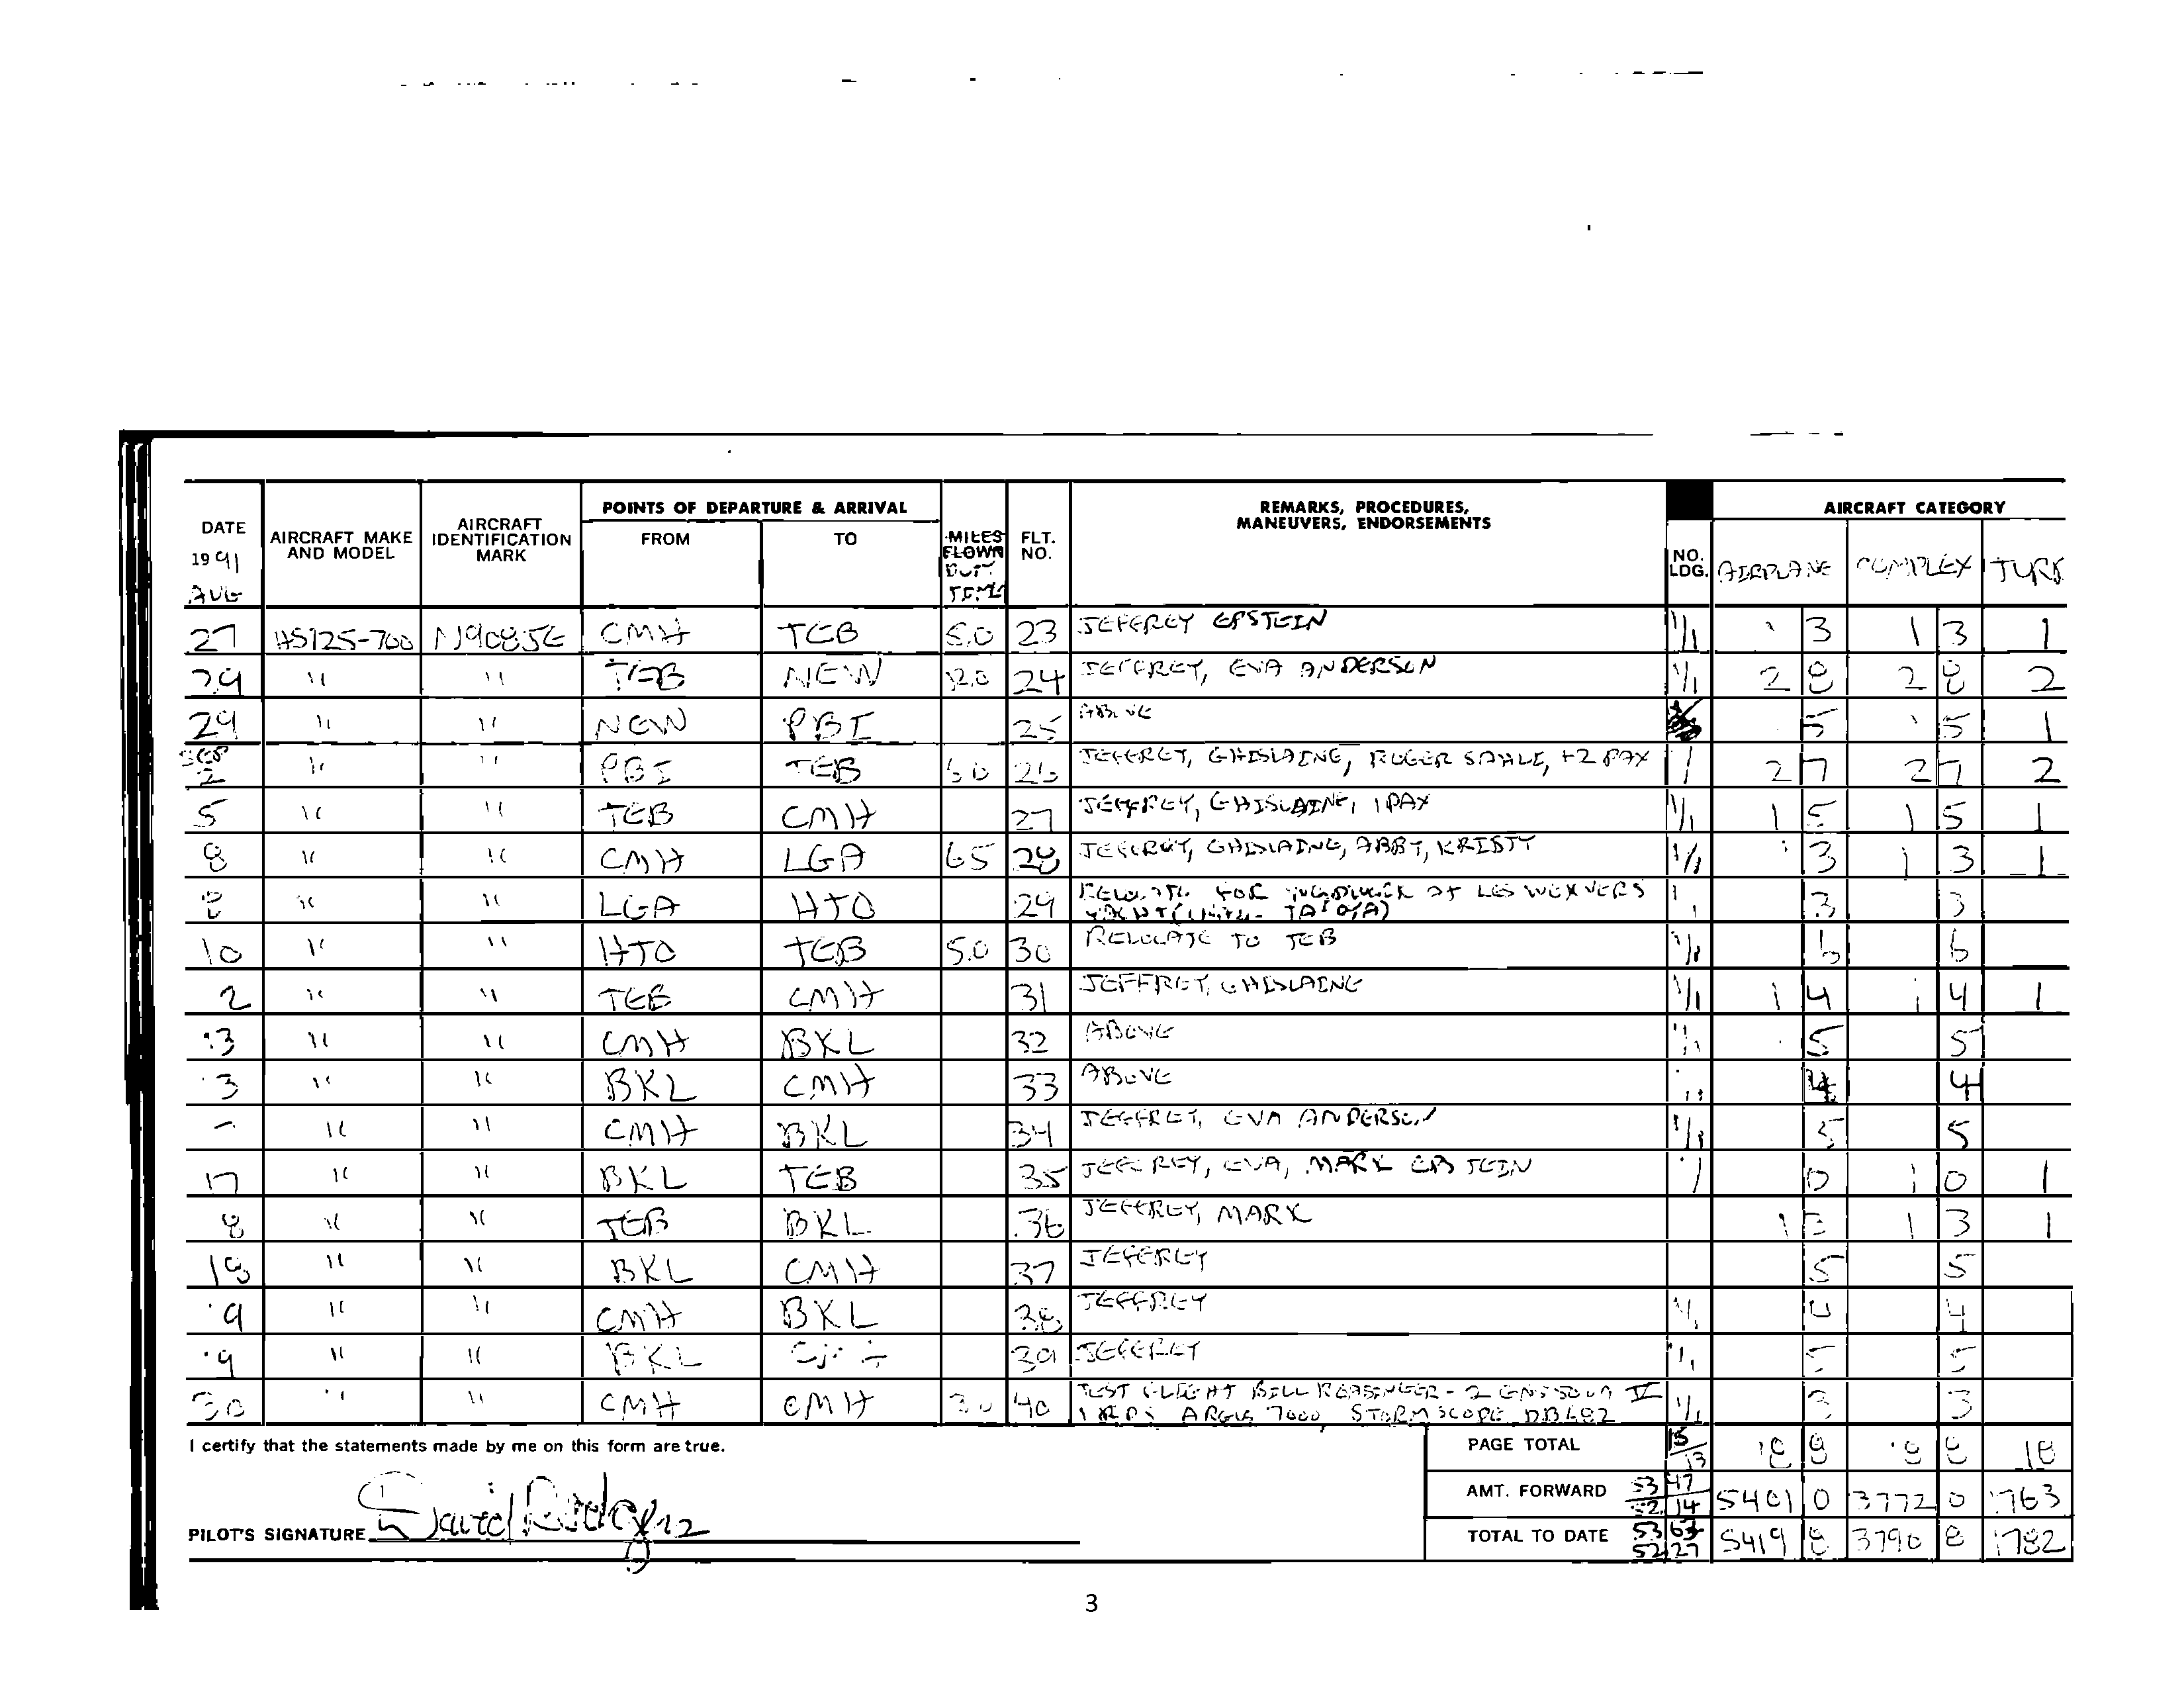 POINTS OF DEPARTURE & ARRIVAL
REMARKS, PROCEDURES,
MANEUVERS, ENDORSEMENTS
AIRCRAFT CATEGORY
DATE
1991
AUG
AIRCRAFT MAKE
AND MODEL
AIRCRAFT
IDENTIFICATION
MARK
FROM
TO
MILES
FLOWN
FLT.
NO.
NO.
LDG.
AIRPLANE
COMPLEX
27 HS125-700 N908JE CMH TEB 5.0 23 JEFFREY EPSTEIN 1/1 3 1 3 1
29 " " TEB NEW 12.0 24 JEFFREY, EVA ANDERSON 1/1 2 8 2 8 2
29 " " NEW PBI 25 ABOVE 5 5 1
SEP
2 " " PBI TEB 26 JEFFREY, GHISLAINE, ROGER +2 PAX 2 7 2 7 2
5 " " TEB CMH 27 JEFFREY, GHISLAINE, 1 PAX 1/1 1 5 1 5 1
8 " " CMH LGA 6.5 28 JEFFREY, GHISLAINE, ABBY, KRISTY 1/1 3 1 3 1
" " LGA HTO 29 FOR OF LES WEXNERS 3 3
10 " " HTO TEB 5.0 30 RELOCATE TO TEB 1/1 6 6
2 " " TEB CMH 31 JEFFREY, GHISLAINE 1/1 1 4 1 4 1
3 " " CMH BKL 32 ABOVE 5 5
3 " " BKL CMH 33 ABOVE 4 4
" " CMH BKL 34 JEFFREY, EVA ANDERSON 1/1 5 5
17 " " BKL TEB 35 JEFFREY, EVA, MARK EPSTEIN 0 1 0 1
8 " " TEB BKL 36 JEFFREY, MARK 1 3 1 3 1
18 " " BKL CMH 37 JEFFREY 5 5
9 " " CMH BKL 38 JEFFREY 4 4
9 " " BKL 39 JEFFREY 5 5
30 " " CMH CMH 3.0 40 TEST FLIGHT BILL - 2 II 1/1 3 3
ARGUS 7000, STORMSCOPE
I certify that the statements made by me on this form are true.
PAGE TOTAL 15/13 18 8 18 8 18
AMT. FORWARD 5347 5214 5401 0 3772 0 1763
PILOT'S SIGNATURE David Rodgers
TOTAL TO DATE 5227 5419 8 3790 8 1782
3